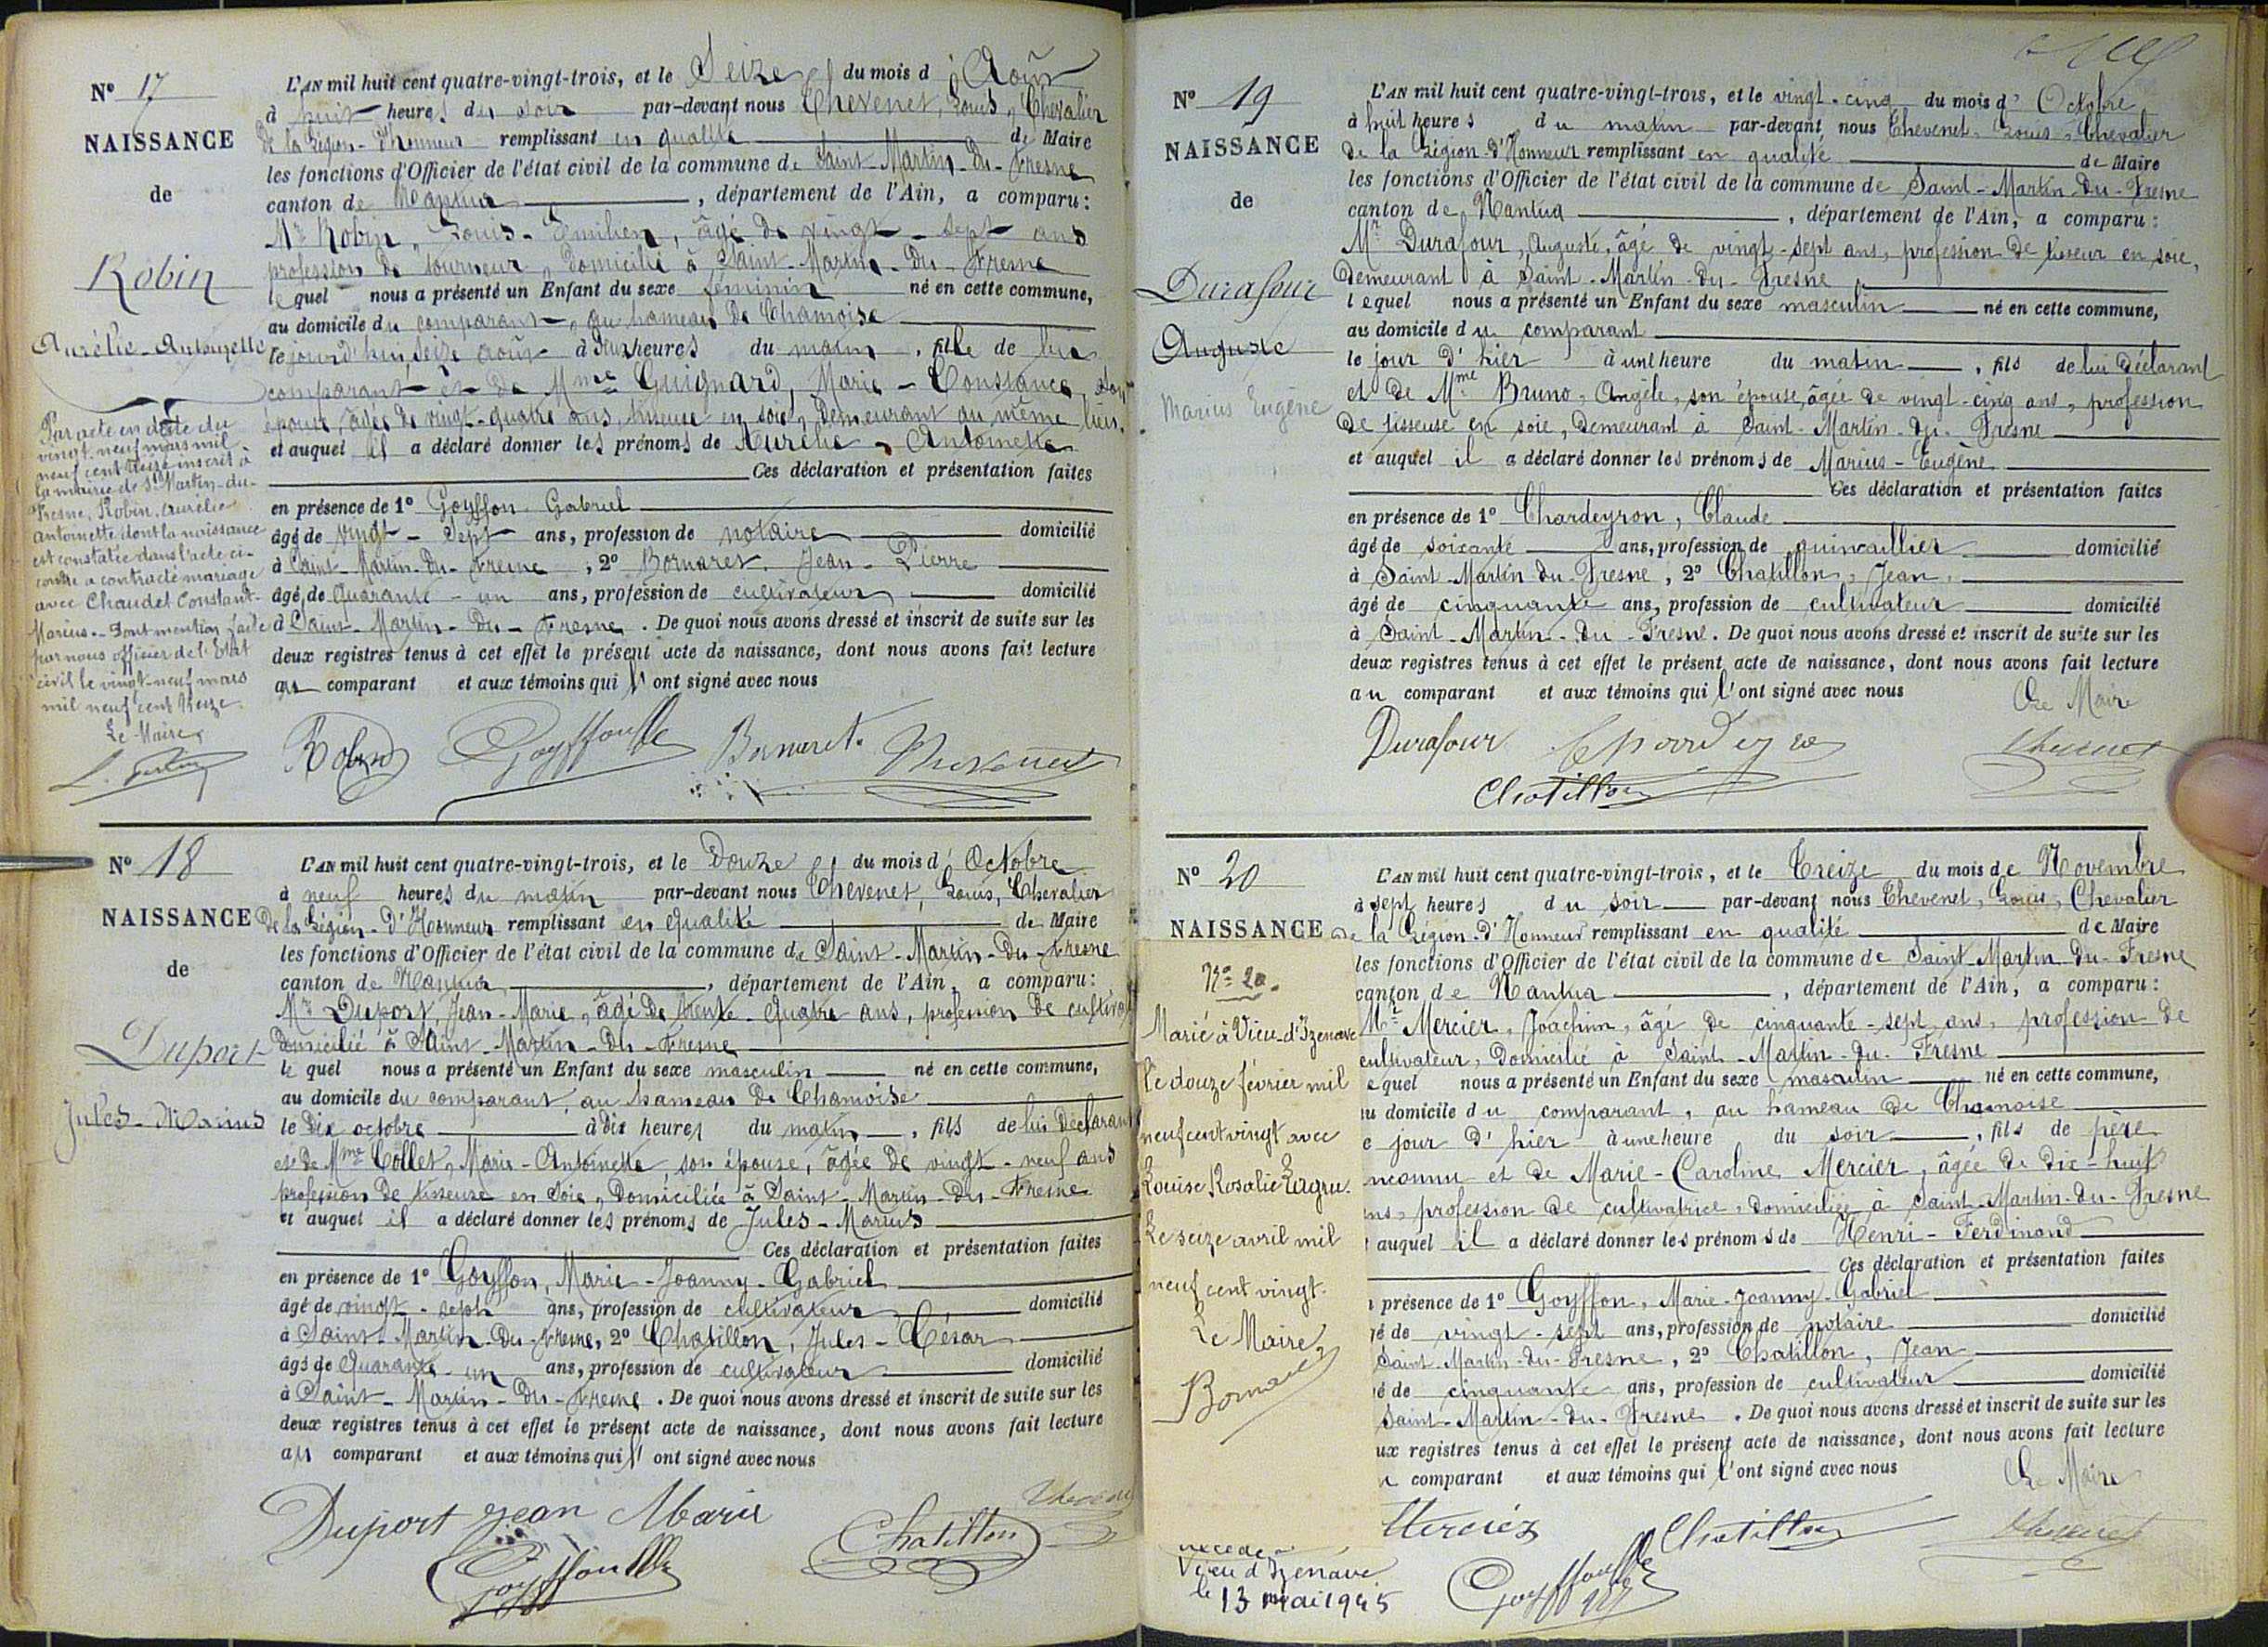 N° 17
NAISSANCE
de
Robin
Aurélie-Antoinette
Par acte en date du
vingt-neuf mars mil
neuf cent treize inscrit à
la mairie de St Martin-du-
Fresne, Robin, Aurélie
Antoinette dont la naissance
est constatée dans l'acte ci-
contre a contracté mariage
avec Chaudet Constant-
Marius. - Dont mention faite
par nous officier de l'Etat
civil le vingt-neuf mars
mil neuf cent treize.
Le Maire,
L'AN mil huit cent quatre-vingt-trois, et le Seize du mois d'Août
à huit heures du soir par-devant nous Chevenet, Louis, Chevalier
de la Légion-d'Honneur remplissant en qualité de Maire
les fonctions d'Officier de l'état civil de la commune de Saint-Martin-du-Fresne
canton de Nantua, département de l'Ain, a comparu:
Mr Robin, Louis-Emilien, âgé de vingt-sept ans
profession de tourneur, domicilié à Saint-Martin-du-Fresne
lequel nous a présenté un Enfant du sexe féminin né en cette commune,
au domicile du comparant, au hameau de Chamoise
le jourd'hui seize août à deux heures du matin, fille de lui
comparant et de Mme Guignard, Marie-Constance, son
épouse, âgée de vingt-quatre ans, tisseuse en soie, demeurant au même lieu,
et auquel il a déclaré donner les prénoms de Aurélie, Antoinette
Ces déclaration et présentation faites
en présence de 1° Goyffon Gabriel
âgé de vingt-sept ans, profession de notaire domicilié
à Saint-Martin-du-Fresne, 2° Bornaret, Jean-Pierre
âgé de quarante-un ans, profession de cultivateur domicilié
à Saint-Martin-du-Fresne. De quoi nous avons dressé et inscrit de suite sur les
deux registres tenus à cet effet le présent acte de naissance, dont nous avons fait lecture
au comparant et aux témoins qui l'ont signé avec nous
Robin Goyffon Bornaret Chevenet
N° 18
NAISSANCE
de
Duport
Jules-Marius
L'AN mil huit cent quatre-vingt-trois, et le Douze du mois d'Octobre
à neuf heures du matin par-devant nous Chevenet, Louis, Chevalier
de la Légion-d'Honneur remplissant en qualité de Maire
les fonctions d'Officier de l'état civil de la commune de Saint-Martin-du-Fresne
canton de Nantua, département de l'Ain, a comparu:
Mr Duport, Jean-Marie, âgé de trente-quatre ans, profession de cultiva
domicilié à Saint-Martin-du-Fresne
lequel nous a présenté un Enfant du sexe masculin né en cette commune,
au domicile du comparant, au hameau de Chamoise
le dix octobre à dix heures du matin, fils de lui déclarant
et de Mme Collet, Marie-Antoinette, son épouse, âgée de vingt-neuf ans
profession de tisseuse en soie, domiciliée à Saint-Martin-du-Fresne
et auquel il a déclaré donner les prénoms de Jules-Marius
Ces déclaration et présentation faites
en présence de 1° Goyffon, Marie-Joanny-Gabriel
âgé de vingt-sept ans, profession de cultivateur domicilié
à Saint-Martin-du-Fresne, 2° Chatillon, Jules-César
âgé de quarante-un ans, profession de cultivateur domicilié
à Saint-Martin-du-Fresne. De quoi nous avons dressé et inscrit de suite sur les
deux registres tenus à cet effet le présent acte de naissance, dont nous avons fait lecture
au comparant et aux témoins qui l'ont signé avec nous
Duport Jean Marie Chatillon Chevenet
Goyffon
N° 19
NAISSANCE
de
Durafour
Auguste
Marius Eugène
L'AN mil huit cent quatre-vingt-trois, et le vingt-cinq du mois d'Octobre
à huit heures du matin par-devant nous Chevenet, Louis, Chevalier
de la Légion-d'Honneur remplissant en qualité de Maire
les fonctions d'Officier de l'état civil de la commune de Saint-Martin-du-Fresne
canton de Nantua, département de l'Ain, a comparu:
Mr Durafour, Auguste, âgé de vingt-sept ans, profession de tisseur en soie,
demeurant à Saint-Martin-du-Fresne
lequel nous a présenté un Enfant du sexe masculin né en cette commune,
au domicile du comparant
le jour d'hier à une heure du matin, fils de lui déclarant
et de Mme Bruno, Angèle, son épouse, âgée de vingt-cinq ans, profession
de tisseuse en soie, demeurant à Saint-Martin-du-Fresne
et auquel il a déclaré donner les prénoms de Marius-Eugène
Ces déclaration et présentation faites
en présence de 1° Chardeyron, Claude
âgé de soixante ans, profession de quincaillier domicilié
à Saint-Martin-du-Fresne, 2° Chatillon, Jean,
âgé de cinquante ans, profession de cultivateur domicilié
à Saint-Martin-du-Fresne. De quoi nous avons dressé et inscrit de suite sur les
deux registres tenus à cet effet le présent acte de naissance, dont nous avons fait lecture
au comparant et aux témoins qui l'ont signé avec nous
Le Maire
Durafour Chevenet
Chatillon
N° 20
NAISSANCE
N° 20.
Marié à Vieu-d'Izenave
le douze février mil
neuf cent vingt avec
Louise Rosalie Lagru.
Le seize avril mil
neuf cent vingt.
Le Maire,
Bornaret
Vieu d'Izenave
le 13 mai 1945
L'AN mil huit cent quatre-vingt-trois, et le Treize du mois de Novembre
à sept heures du soir par-devant nous Chevenet, Louis, Chevalier
de la Légion-d'Honneur remplissant en qualité de Maire
les fonctions d'Officier de l'état civil de la commune de Saint-Martin-du-Fresne
canton de Nantua, département de l'Ain, a comparu:
Mr Mercier, Joachim, âgé de cinquante-sept ans, profession de
cultivateur, domicilié à Saint-Martin-du-Fresne
equel nous a présenté un Enfant du sexe masculin né en cette commune,
au domicile du comparant, au hameau de Chamoise
e jour d'hier à une heure du soir, fils de père
nconnu et de Marie-Caroline Mercier, âgée de dix-huit
ans, profession de cultivatrice, domiciliée à Saint-Martin-du-Fresne
auquel il a déclaré donner les prénoms de Henri-Ferdinand
Ces déclaration et présentation faites
présence de 1° Goyffon, Marie-Joanny-Gabriel
gé de vingt-sept ans, profession de notaire domicilié
Saint-Martin-du-Fresne, 2° Chatillon, Jean
é de cinquante ans, profession de cultivateur domicilié
Saint-Martin-du-Fresne. De quoi nous avons dressé et inscrit de suite sur les
ux registres tenus à cet effet le présent acte de naissance, dont nous avons fait lecture
u comparant et aux témoins qui l'ont signé avec nous
Le Maire
Mercier Chatillon Chevenet
Goyffon